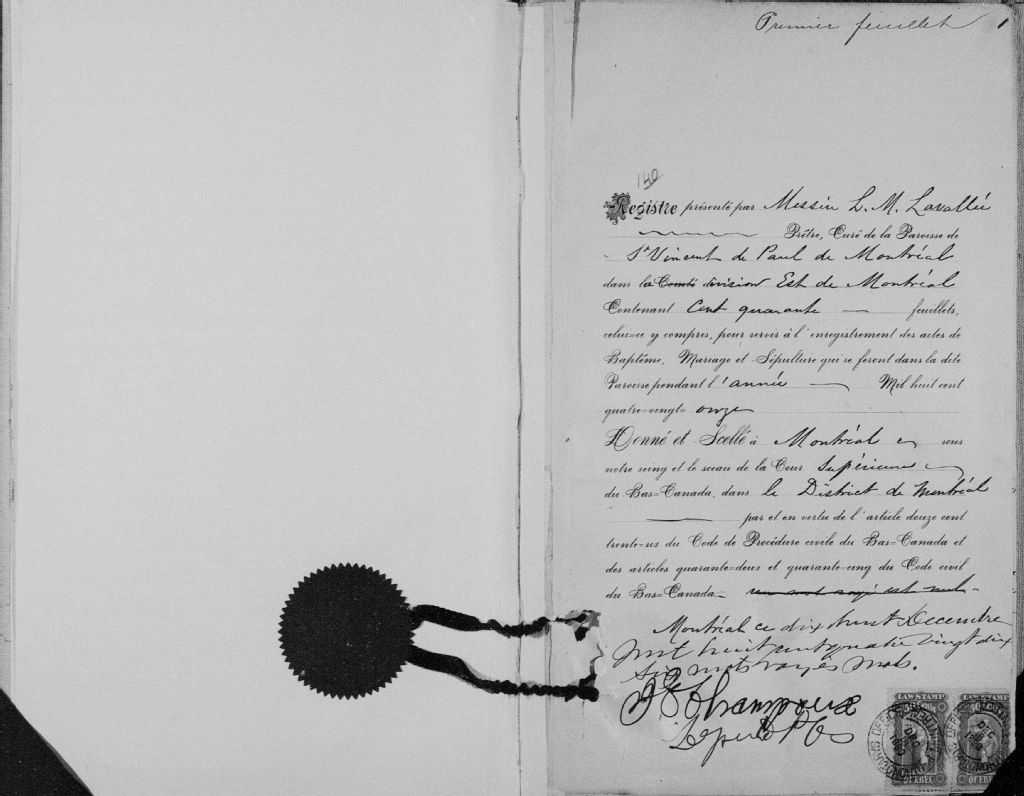 Premier feuillet 1
140
Registre présenté par Messire L. M. Lavallée
Prêtre, Curé de la Paroisse de
St Vincent de Paul de Montréal
dans la Comté division Est de Montréal
Contenant Cent quarante feuillets,
celui=ci y compris, pour servir à l'enregistrement des actes de
Baptême, Mariage et Sépulture qui se feront dans la dite
Paroisse pendant l'année Mil huit cent
quatre=vingt= onze
Donné et Scellé à Montréal sous
notre seing et le sceau de la Cour Supérieure
du Bas=Canada, dans le District de Montréal
par et en vertu de l'article douze cent
trente=six du Code de Procédure civile du Bas=Canada et
des articles quarante=deux et quarante=cinq du Code civil
du Bas=Canada. un mot rayé est nul.
Montréal ce dix huit Decembre
mil huit cent quatre vingt dix
six mots rayés nuls.
Champoux
Dep
LAW STAMP LAW STAMP
DEC DEC
QUEBEC QUEBEC